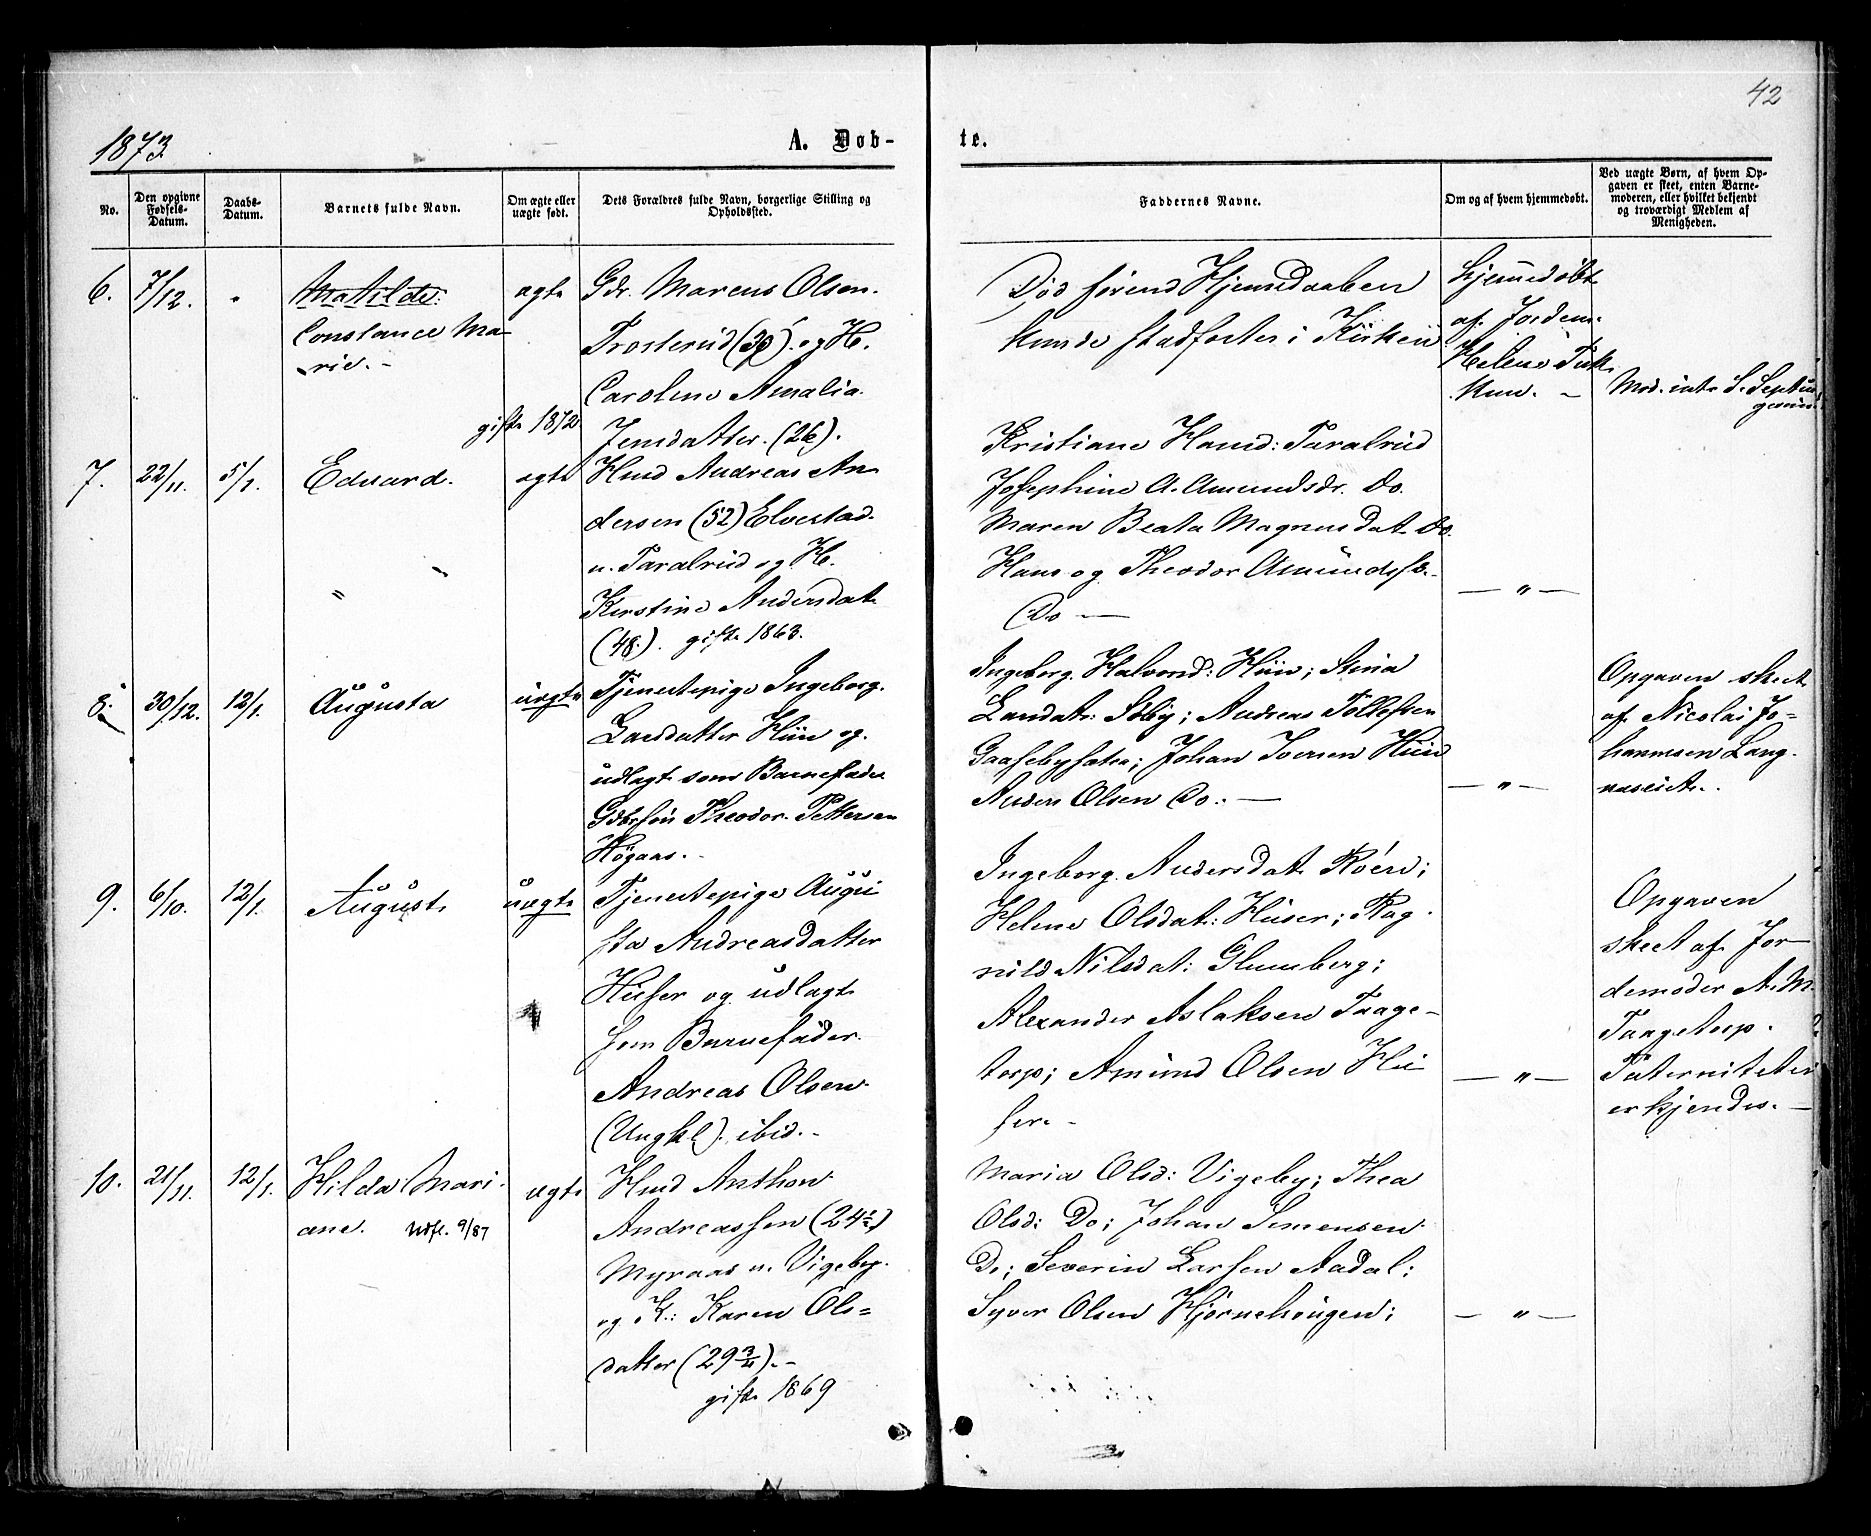 42
1873.
A. Døb-
te.
No.
Den opgivne Fødsels-Datum.
Daabs-Datum.
Barnets fulde Navn.
Om ægte eller uægte født.
Dets Forældres fulde Navn, borgerlige Stilling og Opholdssted.
Faddernes Navne.
Om og af hvem hjemmedøbt.
Ved uægte Børn, af hvem Op-
gaven er skeet, enten Barne-
moderen, eller hvilket bekjendt
og troværdigt Medlem af
Menigheden.
6. 7/12. "
Matilde.
Constance Ma-
rie. -
ægte
Gdr. Marcus Olsen
Trosterud (30). og H.
Caroline Amalia
Jensdatter. (26).
gift 1872
Død førend Hjemdaaben
kunde stadfæstes i Kirken
hjemdøbt
af Jordem.
Helene
Mod. intr. S. Septua
gesim.
7. 22/11. 5/1.
Eduard.
ægte
Hmd Andreas An
dersen (52) Elvestad
u. Taralrud og H.
Kerstine Andersdat.
(48.). gift. 1863.
Kristiane Hansd: Taralrud
Josephine A. Amundsdr. Do.
Maren Beata Magnusdat Do.
Hans og Theodor Amunds
Do —
— " —
8. 30/12. 12/1.
Augusta
uægte
Tjenestepige Ingeborg
Larsdatter Hiin og
udlagt som Barnefader
Gdbrsøn Theodor Pettersen
Høgaas. -
Ingeborg Halvorsd: Hiin; Stina
Larsdatr: Søby; Andreas Tollefsen
Gaasebysæter; Johan Iversen Hiin
Anders Olsen Do. —
— " —
Opgaven skeet
af Nicolai Jo-
hannesen Lang
næseiet.
9. 6/10. 12/1.
August
uægte
Tjenestepige Augu
sta Andreasdatter
Huser og udlagt
som Barnefader
Andreas Olsen
(Ungkl). ibid. -
Ingeborg Andersdat. Roen;
Helene Olsdat: Huser; Rag
nild Nilsdat: Glumberg;
Alexander Aslaksen Taage-
torp; Amund Olsen Hu
ser. -
— " —
Opgaven
skeet af Jor
demoder A. M.
Taagetorp.
Paterniteten
erkjendes. —
10. 21/11. 12/1.
Hilda Mari
ane. Udfl. 9/87
ægte
Hmd Anthon
Andreassen (24½)
Myraas u. Vigeby.
og K.: Karen Ols=
datter (29¾). -
gift. 1869
Maria Olsd: Vigeby; Thea
Olsd: Do; Johan Simensen
Do; Severin Larsen Aadal;
Syver Olsen Kjørnehaugen;
— " —